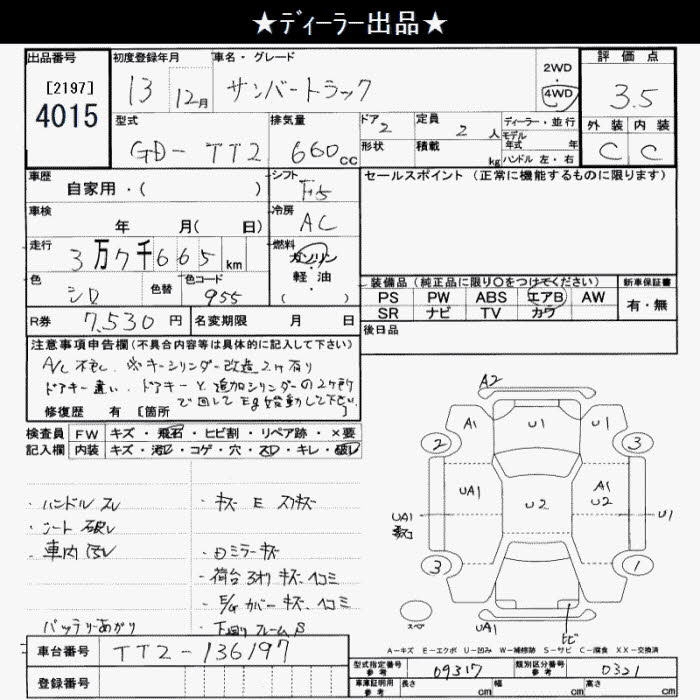 ★ディーラー出品★
出品番号
[2197]
4015
初度登録年月
13 12月
車名・グレード
サンバートラック
2WD
・
4WD
評価点
3.5
型式
GD-TT2
排気量
660cc
ドア 2
形状
定員 2 人
積載 kg
ディーラー・並行
モデル年式 年
ハンドル 左・右
外装 内装
C C
車歴
自家用・( )
シフト
F5
セールスポイント (正常に機能するものに限ります)
車検
年 月( 日)
冷房
AC
走行
3万7千665km
燃料
ガソリン
軽油
( )
色
シロ
色替
色コード
955
装備品 (純正品に限り○をつけてください)
PS PW ABS エアB AW
SR ナビ TV カワ
新車保証書
有・無
R券 7,530 円
名変期限 月 日
後日品
注意事項申告欄(不具合内容等は具体的に記入して下さい)
A/C 不良. ※キーシリンダー改造2ヶ有り
ドアキー違い. ドアキーと追加シリンダーの2ヶ所
で回してEg始動して下さい.
修復歴 有 [箇所 ]
検査員 FW キズ・飛石・ヒビ割・リペア跡・×要
記入欄 内装 キズ・汚レ・コゲ・穴・スレ・キレ・破レ
・ハンドル スレ
・シート 破レ
・車内 汚レ
バッテリーあがり
・キズ E スリキズ
・Dミラーキズ
・荷台 3オリ キズ ヘコミ
・E/G カバー キズ ヘコミ
・下回り フレーム S
A2
A1
U1
2
3
UA1
U2
A1
U2
UA1
U1
3
1
スペア
UA1
ヒビ
A-キズ E-エクボ U-凹み W-補修跡 S-サビ C-腐食 XX-交換済
車台番号 TT2-136197
登録番号
型式指定番号 参考 09317
類別区分番号 参考 0321
車庫証明用 参考 長さ cm 幅 cm 高さ cm